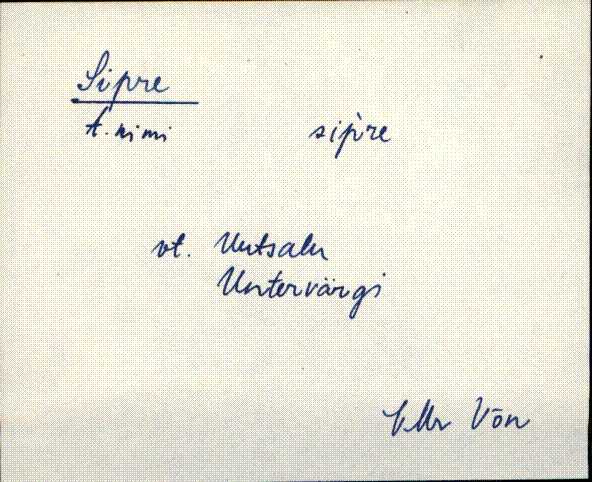 Sipre
t. nimi sip̀re
vt. Uutsalu
Untervärgi
VMr Võn